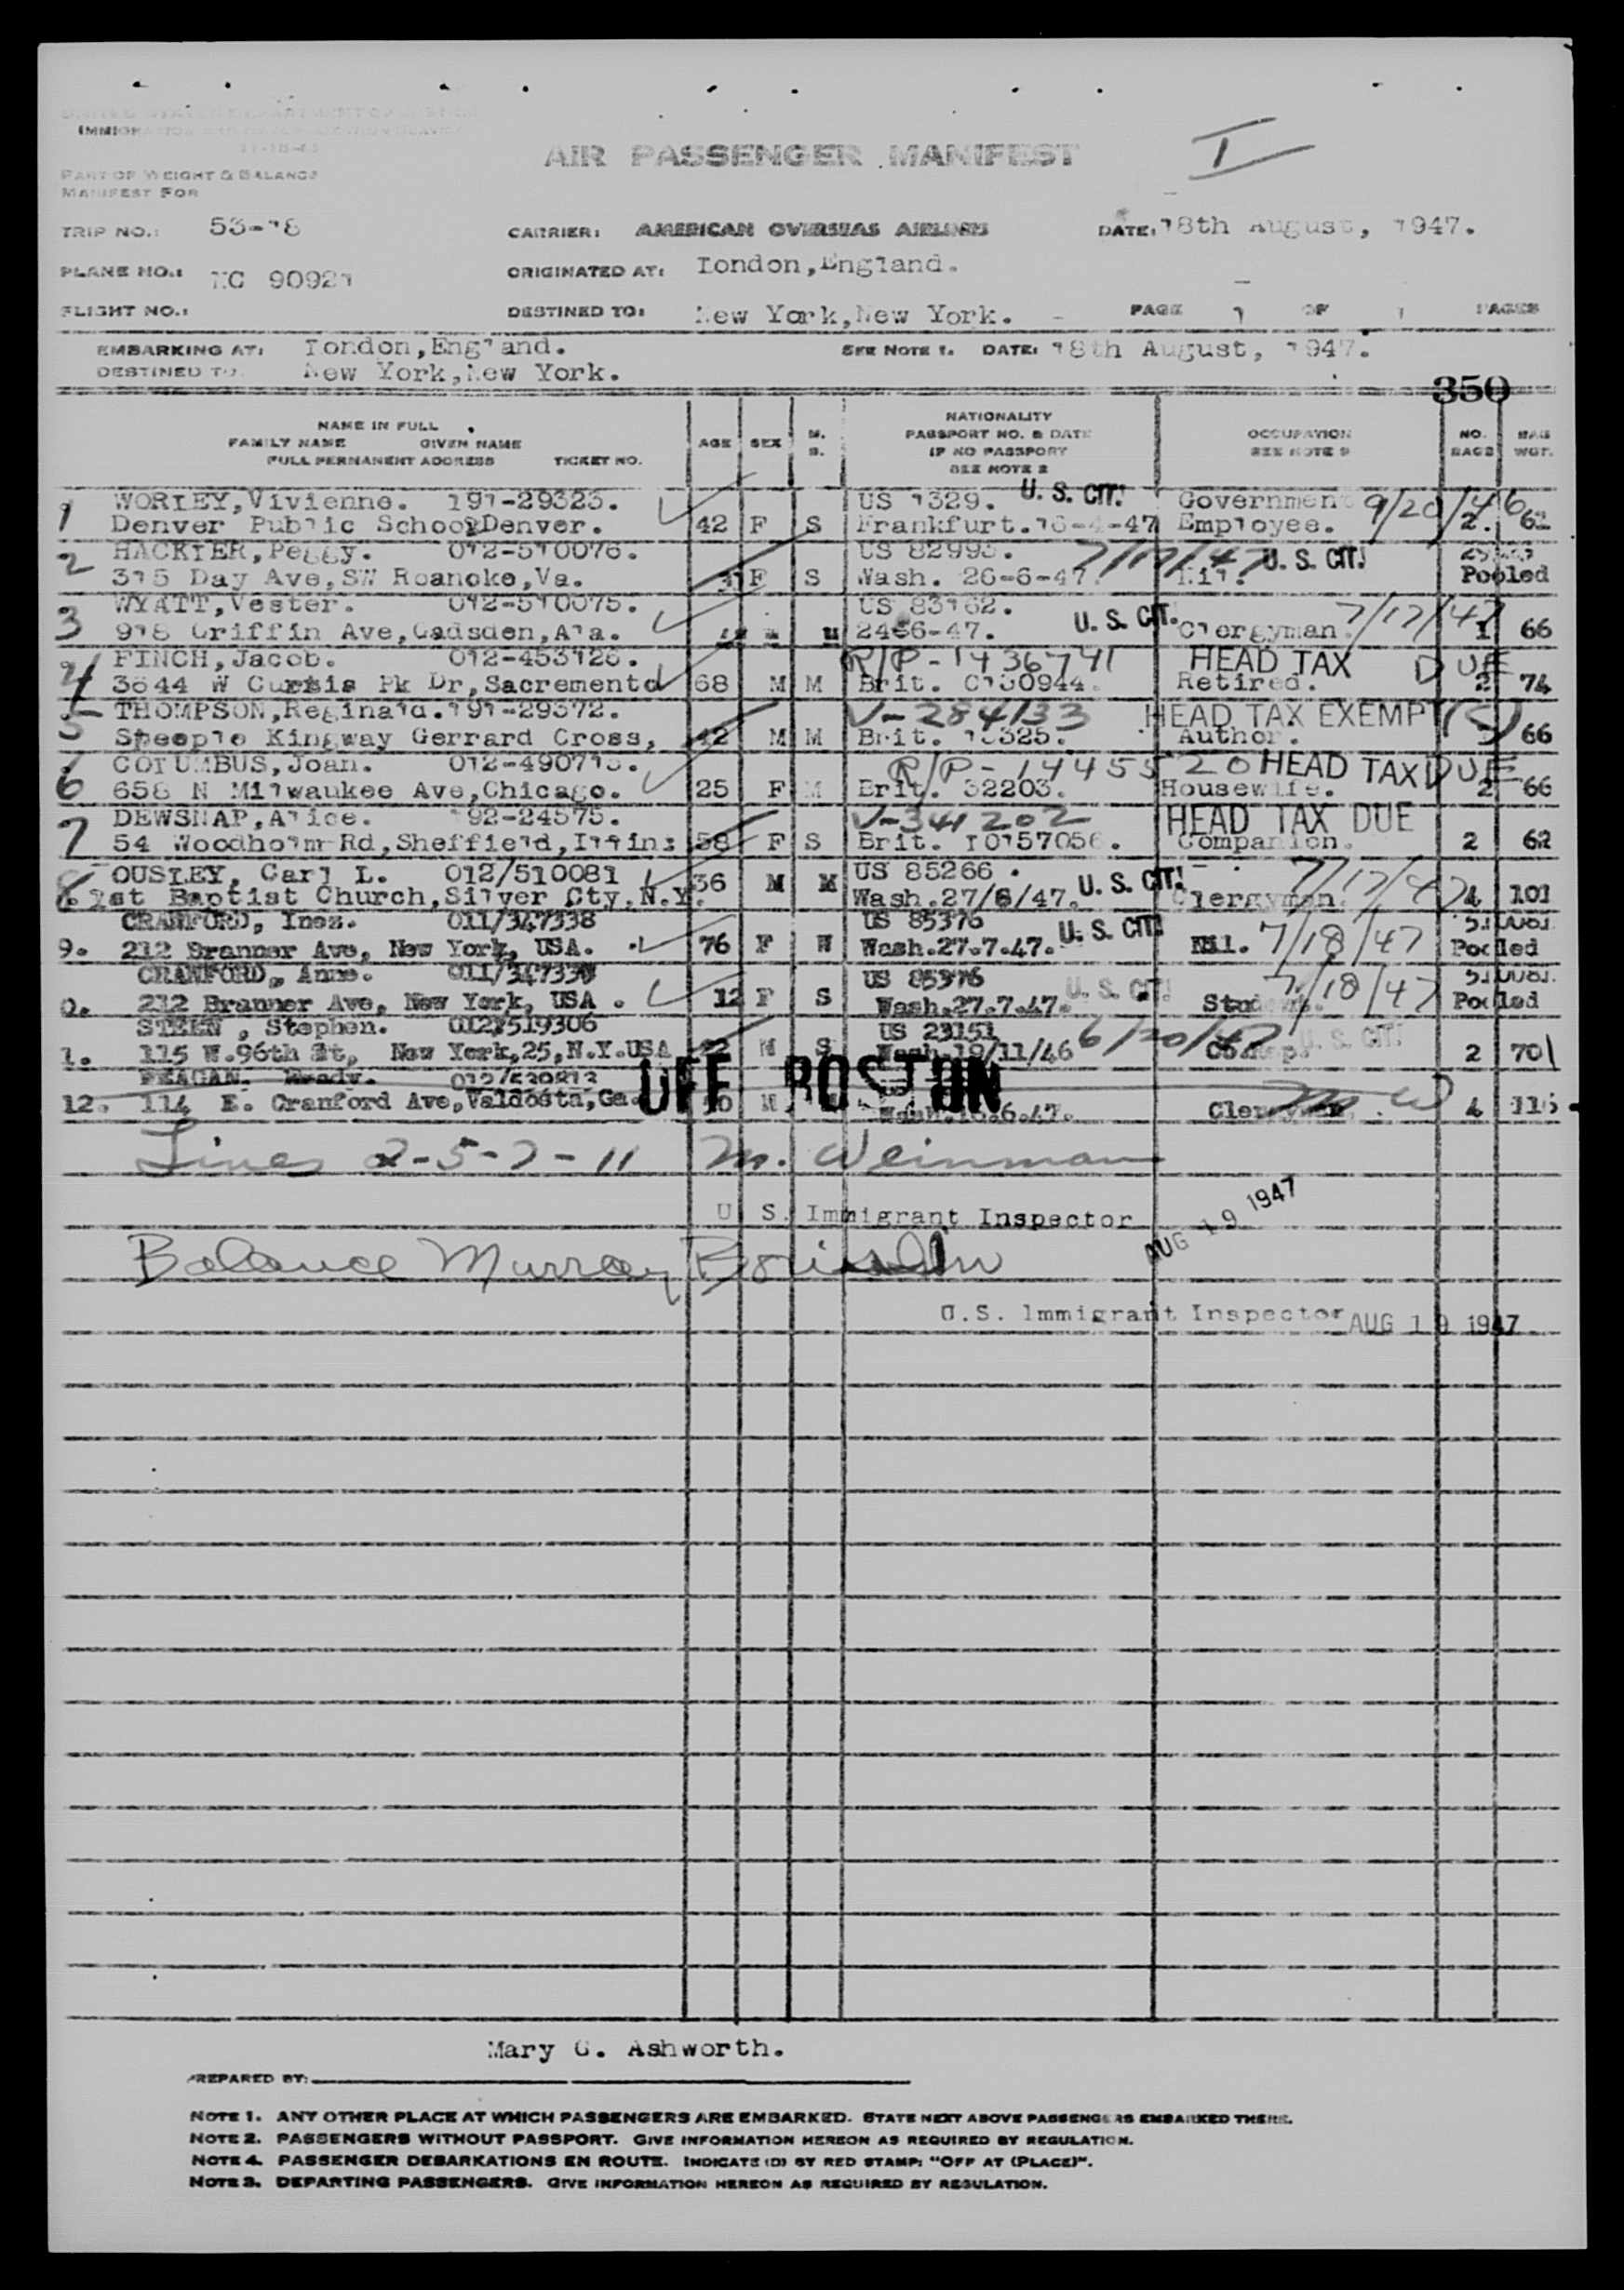 UNITED STATES DEPARTMENT OF JUSTICE
IMMIGRATION AND NATURALIZATION SERVICE
AIR PASSENGER MANIFEST
I
PART OF WEIGHT & BALANCE
MANIFEST FOR
TRIP NO.: 53-18 CARRIER: AMERICAN OVERSEAS AIRLINES DATE: 18th August, 1947.
PLANE NO.: NC 90921 ORIGINATED AT: London,England.
FLIGHT NO.: DESTINED TO: New York,New York. PAGE 1 OF 1 PAGES
EMBARKING AT: London,England. SEE NOTE 1. DATE: 18th August, 1947.
DESTINED TO: New York,New York.
350
NAME IN FULL
FAMILY NAME GIVEN NAME
FULL PERMANENT ADDRESS TICKET NO.
AGE SEX M. S.
NATIONALITY
PASSPORT NO. & DATE
IF NO PASSPORT
SEE NOTE 2
OCCUPATION
SEE NOTE 3
NO. BAGS BAG WGT.
1 WORLEY,Vivienne. 191-29323. US 1329. U. S. CIT. Government 9/20/46
Denver Public School Denver. 42 F S Frankfurt.16-4-47 Employee. 2. 62
2 HACKLER,Peggy. 012-510076. US 82993. 7/17/47 U. S. CIT.
315 Day Ave,SW Roanoke,Va. 31 F S Wash. 26-6-47. Nil. Pooled
3 WYATT,Vester. 012-510075. US 83162. U. S. CIT. 7/17/47
918 Griffin Ave,Gadsden,Ala. M 24-6-47. Clergyman. 1 66
4 FINCH,Jacob. 012-453126. R/P-1436741 HEAD TAX DUE
3644 W Curtis Pk Dr,Sacremento 68 M M Brit. C130944. Retired. 2 74
5 THOMPSON,Reginald. 191-29372. V-284133 HEAD TAX EXEMPT (5)
Steeple Kingway Gerrard Cross, 42 M M Brit. 16325. Author. 66
6 COLUMBUS,Joan. 012-490713. R/P-1445520 HEAD TAX DUE
658 N Milwaukee Ave,Chicago. 25 F M Brit. 32203. Housewife. 2 66
7 DEWSNAP,Alice. 192-24575. V-341202 HEAD TAX DUE
54 Woodholm Rd,Sheffield,Illins 58 F S Brit. L0157056. Companion. 2 62
8. OUSLEY, Carl L. 012/510081 36 M M US 85266. U. S. CIT. 7/17/47
1st Baptist Church,Silver Cty,N.Y. Wash.27/6/47. Clergyman. 4 101
CRANFORD, Inez. 011/347338 US 85376 U. S. CIT.
9. 212 Branner Ave, New York, USA. 76 F W Wash.27.7.47. Nil. 7/18/47 Pooled
CRANFORD, Anne. 011/347339 US 85376 U. S. CIT.
0. 212 Branner Ave, New York, USA. 12 F S Wash.27.7.47. Student. 7/18/47 Pooled
STEEN, Stephen. 012/519306 US 23151 6/20/47 U. S. CIT.
1. 115 W.96th St, New York,25,N.Y.USA 22 M S Wash.19/11/46 2 70
FEAGAN. Brady. 012/520213 OFF BOSTON
12. 114 E. Cranford Ave,Valdosta,Ga. M Wash.16.6.47. Clergyman. MW 4 115
Lines 2-5-7-11 M. Weinman
U S. Immigrant Inspector AUG 19 1947
Balance Murray
U.S. Immigrant Inspector AUG 19 1947
Mary G. Ashworth.
PREPARED BY:
NOTE 1. ANY OTHER PLACE AT WHICH PASSENGERS ARE EMBARKED. STATE NEXT ABOVE PASSENGERS EMBARKED THERE.
NOTE 2. PASSENGERS WITHOUT PASSPORT. GIVE INFORMATION HEREON AS REQUIRED BY REGULATION.
NOTE 4. PASSENGER DEBARKATIONS EN ROUTE. INDICATE (D) BY RED STAMP: "OFF AT (PLACE)".
NOTE 3. DEPARTING PASSENGERS. GIVE INFORMATION HEREON AS REQUIRED BY REGULATION.